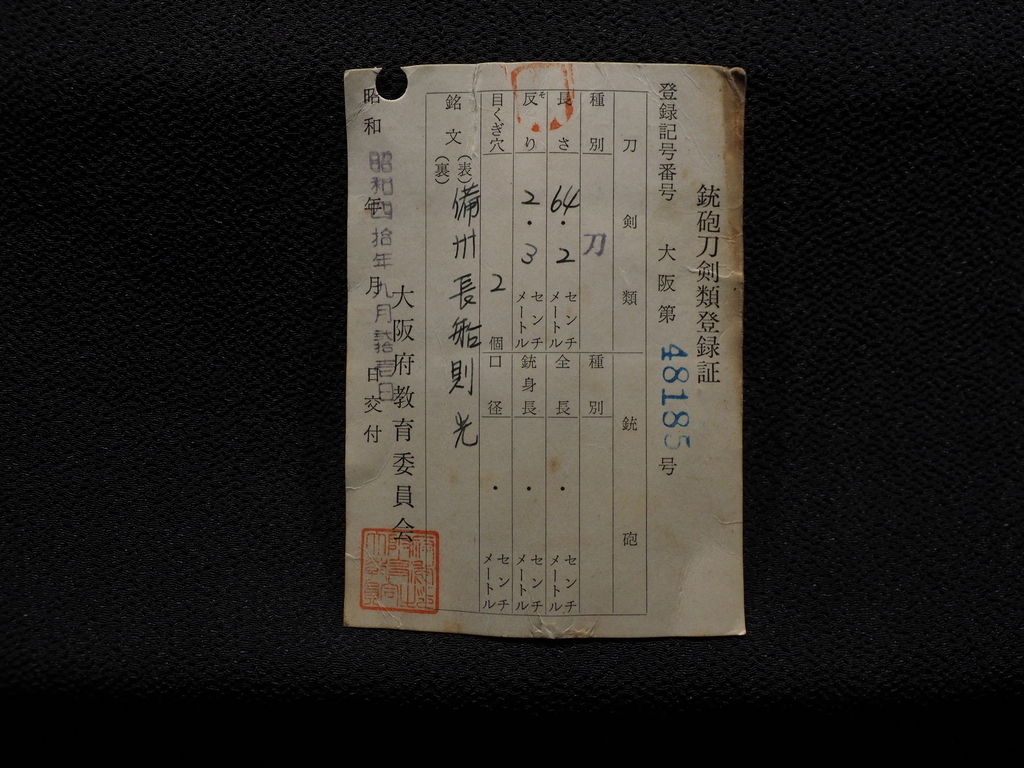 銃砲刀剣類登録証
登録記号番号 大阪第 48185 号
刀剣類
種別 刀
長さ 64.2 センチメートル
反り 2.3 センチメートル
目くぎ穴 2 個
銃砲
種別
全長 . センチメートル
銃身長 . センチメートル
口径 . センチメートル
銘文 (表) 備州長船則光
(裏)
大阪府教育委員会
昭和 年 月 日交付
昭和四拾年九月拾壱日